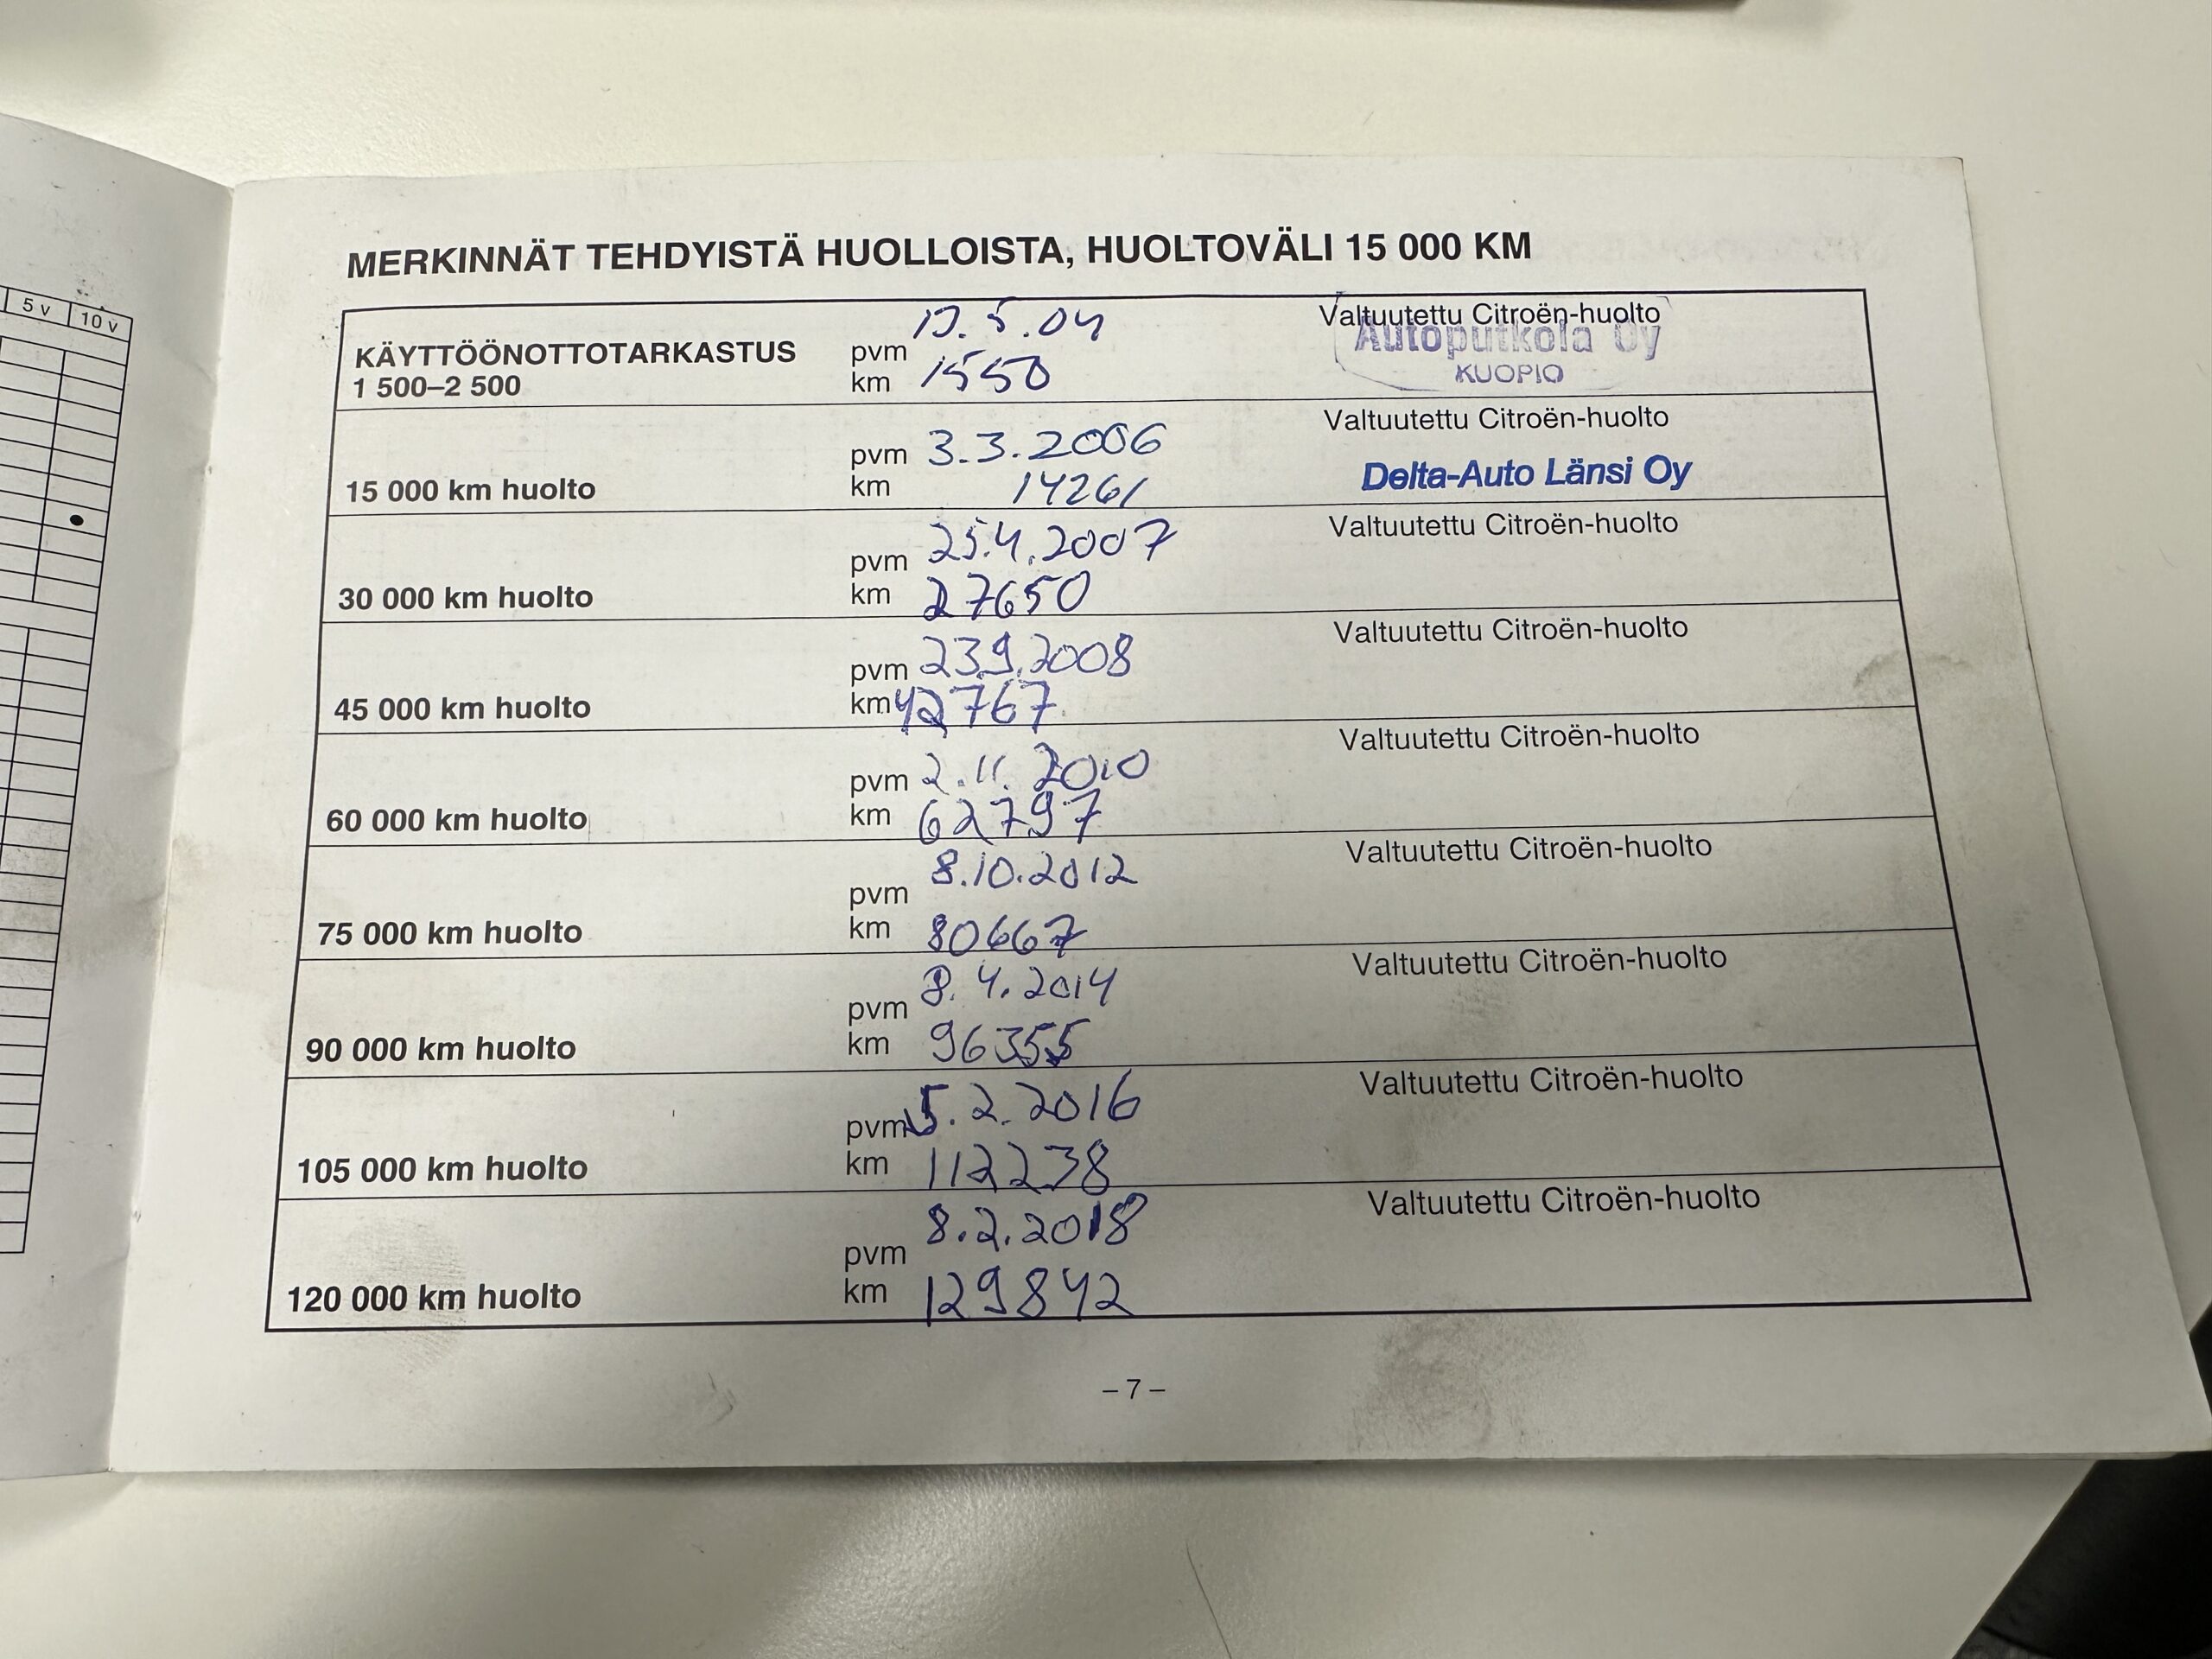 5 v 10 v
MERKINNÄT TEHDYISTÄ HUOLLOISTA, HUOLTOVÄLI 15 000 KM
KÄYTTÖÖNOTTOTARKASTUS
1 500–2 500
pvm
km 1550
Valtuutettu Citroën-huolto
Autoputkola Oy
KUOPIO
15 000 km huolto
pvm 3.3.2006
km 14261
Valtuutettu Citroën-huolto
Delta-Auto Länsi Oy
30 000 km huolto
pvm 25.4.2007
km 27650
Valtuutettu Citroën-huolto
45 000 km huolto
pvm 23.9.2008
km 42767
Valtuutettu Citroën-huolto
60 000 km huolto
pvm 2.11.2010
km 62797
Valtuutettu Citroën-huolto
75 000 km huolto
pvm 8.10.2012
km 80667
Valtuutettu Citroën-huolto
90 000 km huolto
pvm 8.4.2014
km 96355
Valtuutettu Citroën-huolto
105 000 km huolto
pvm 5.2.2016
km 112238
Valtuutettu Citroën-huolto
120 000 km huolto
pvm 8.2.2018
km 129842
Valtuutettu Citroën-huolto
– 7 –